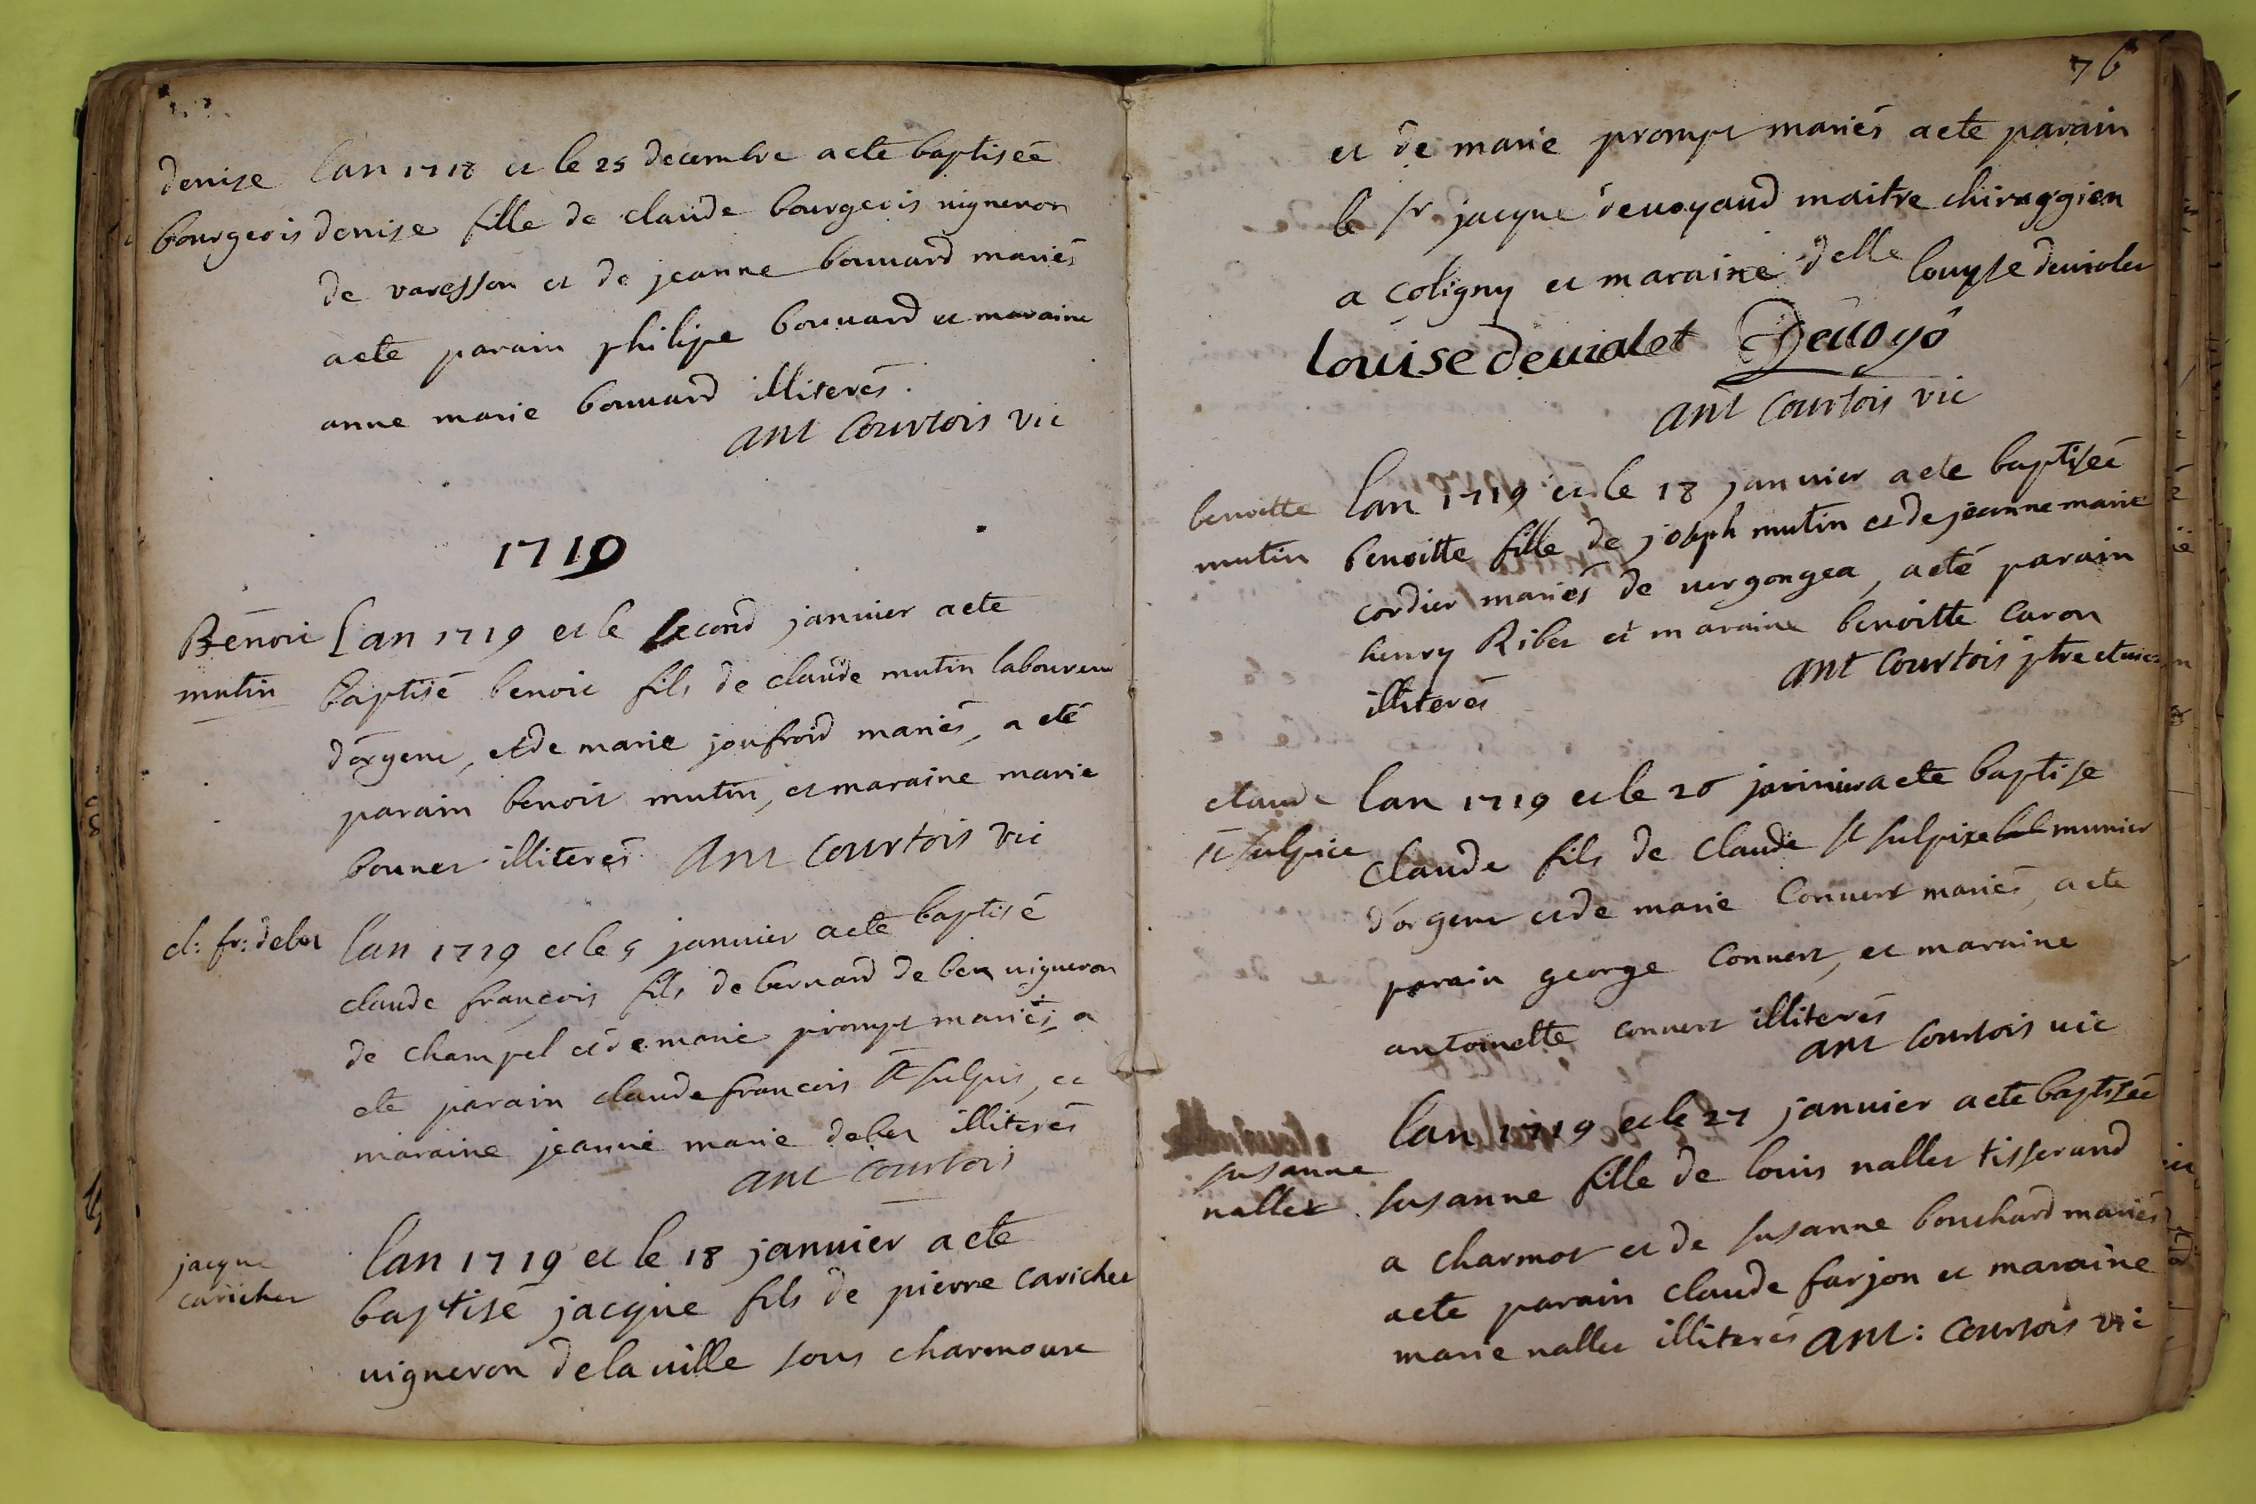 denise lan 1718 et le 25 decembre a ete baptiseé
bourgeois denise fille de claude bourgeois uigneron
de varesson et de jeanne bouuard mariés
a ete parain philipe bouuard et maraine
anne marie bouuard illiterés.
ant Courtois vic
1719
Benoit lan 1719 et le second januier a ete
mutin baptisé benoit fils de claude mutin laboureur
d'orgent, et de marie joufroid mariés, a eté
parain benoit mutin, et maraine marie
bonnet illiterés. Ant Courtois vic
cl: fr: debet lan 1719 et le 5 januier a eté baptisé
claude françois fils de bernard de bet uigneron
de champel et de marie prompt mariés, a
ete parain claude francois st sulpis, et
maraine jeanne marie debet illiterés
ant Courtois
jacque lan 1719 et le 18 januier a ete
carichet baptisé jacque fils de pierre carichet
uigneron de la uille sous charmoux
76
et de marie prompt mariés a ete parain
le sr jacque deuoyaud maitre chirurgien
a Coligny et maraine delle louyse deuiolet
louise deuiolet Deuoyó
ant Courtois vic
benoitte lan 1719 et le 18 januier a ete baptiseé
mutin benoitte fille de joseph mutin et de jeanne marie
cordier mariés de uergongea, a eté parain
henry Ribet et maraine benoitte Caron
illiterés ant Courtois ptre et uic
claude lan 1719 et le 26 januier a ete baptise
st sulpice claude fils de Claude st sulpixe munier
d'orgent et de marie Conuert mariés, a ete
parain george Conuert, et maraine
antoinette conuert illiterés
ant Courtois uic
lan 1719 et le 27 januier a ete baptiseé
susanne susanne fille de louis nallet tisserand
nallet
a charmot et de susanne bouchard mariés
a ete parain claude farjon et maraine
marie nallet illiterés ant: Courtois vic